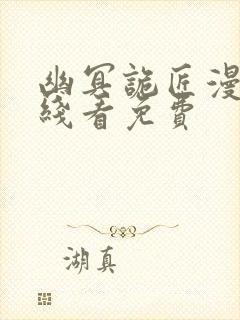 幽冥詭匠漫
綫看免費
湖真